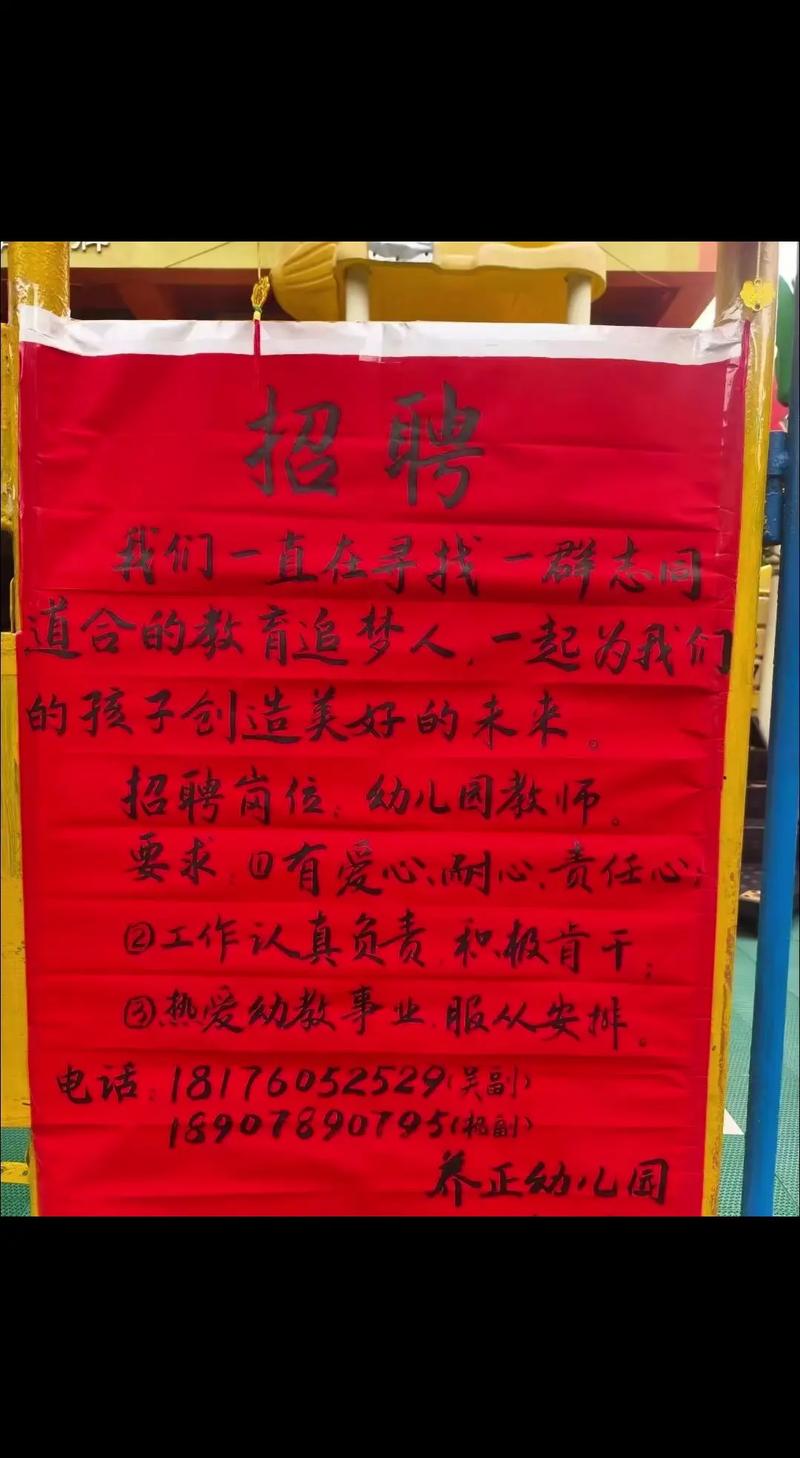 招聘
我们一直在寻找一群志同
道合的教育追梦人,一起为我们
的孩子创造美好的未来。
招聘岗位:幼儿园教师。
要求:①有爱心、耐心、责任心;
②工作认真负责,积极肯干;
③热爱幼教事业,服从安排。
电话:18176052529(吴副)
18907890795(杨副)
养正幼儿园